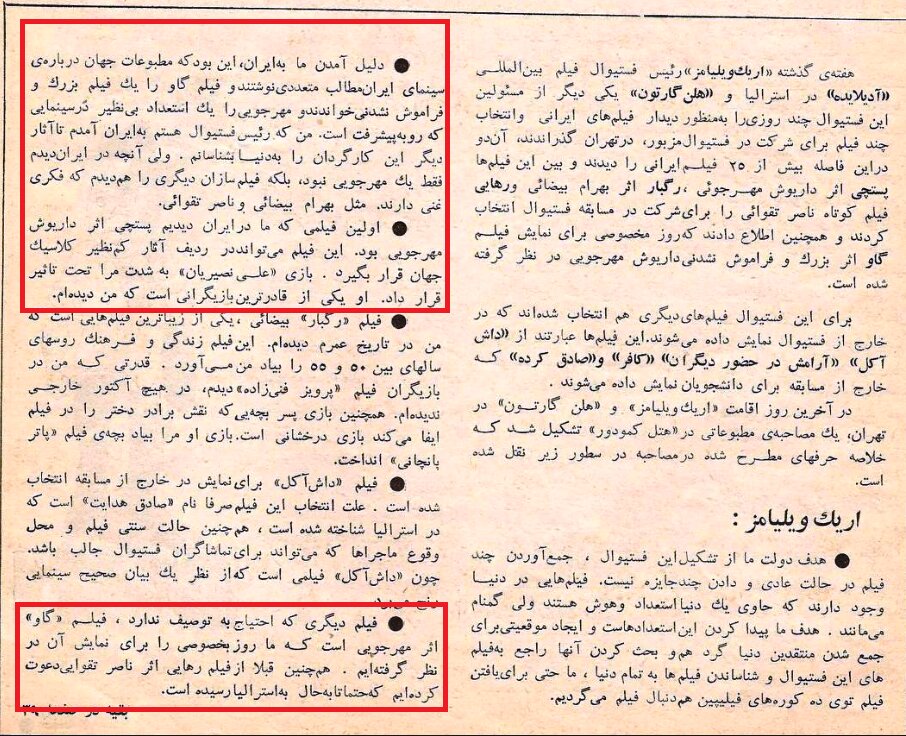 هفته‌ی گذشته «اریك ویلیامز» رئیس فستیوال فیلم بین‌المللی
«آدیلایده» در استرالیا و «هلن گارتون» یکی دیگر از مسئولین
این فستیوال چند روزی را به‌منظور دیدار فیلم‌های ایرانی وانتخاب
چند فیلم برای شرکت در فستیوال مزبور، درتهران گذراندند، آن‌دو
دراین فاصله بیش از ۲۵ فیلم ایرانی را دیدند و بین این فیلم‌ها
پستچی اثر داریوش مهرجوئی ، رگبار اثر بهرام بیضائی ورهایی
فیلم کوتاه ناصر تقوائی را برای شرکت در مسابقه فستیوال انتخاب
کردند و همچنین اطلاع دادند که‌روز مخصوصی برای نمایش فیلم
گاو اثر بزرك و فراموش نشدنی داریوش مهرجویی در نظر گرفته
شده است.
برای این فستیوال فیلم‌های دیگری هم انتخاب شده‌اند که در
خارج از فستیوال نمایش داده می‌شوند. این فیلم‌ها عبارتند از «داش
آکل» «آرامش در حضور دیگران» «کافر» و «صادق کرده» که
خارج از مسابقه برای دانشجویان نمایش داده می‌شوند .
در آخرین روز اقامت «اریك ویلیامز» و «هلن گارتون» در
تهران، یك مصاحبه‌ی مطبوعاتی در «هتل کمودور» تشکیل شد که
خلاصه حرفهای مطرح شده درمصاحبه در سطور زیر نقل شده
است.
اریك ویلیامز :
● هدف دولت ما از تشکیل این فستیوال ، جمع‌آوردن چند
فیلم در حالت عادی و دادن چندجایزه نیست. فیلم‌هایی در دنیا
وجود دارند که حاوی یك دنیا استعداد وهوش هستند ولی گمنام
می‌مانند . هدف ما پیدا کردن این استعدادهاست و ایجاد موقعیتی برای
جمع شدن منتقدین دنیا گرد هم و بحث کردن آنها راجع به‌فیلم
های این فستیوال و شناساندن فیلم‌ها به تمام دنیا ، ما حتی برای یافتن
فیلم توی ده کوره‌های فیلیپین هم‌دنبال فیلم می‌گردیم.
● دلیل آمدن ما به‌ایران، این بودکه مطبوعات جهان درباره‌ی
سینمای ایران مطالب متعددی نوشتندو فیلم گاو را یك فیلم بزرك و
فراموش نشدنی خواندندو مهرجویی را یك استعداد بی‌نظیر درسینمایی
که روبه‌پیشرفت است. من که رئیس فستیوال هستم به‌ایران آمدم تا آثار
دیگر این کارگردان را به‌دنیا بشناسانم . ولی آنچه در ایران دیدم
فقط یك مهرجویی نبود، بلکه فیلم‌سازان دیگری را هم دیدم که فکری
غنی دارند. مثل بهرام بیضائی و ناصر تقوائی.
● اولین فیلمی که ما در ایران دیدیم پستچی اثر داریوش
مهرجویی بود. این فیلم می‌تواند در ردیف آثار کم‌نظیر کلاسیك
جهان قرار بگیرد . بازی «علی نصیریان» به شدت مرا تحت تاثیر
قرار داد. او یکی از قادرترین بازیگرانی است که من دیده‌ام.
● فیلم «رگبار» بیضائی ، یکی از زیباترین فیلم‌هایی است که
من در تاریخ عمرم دیده‌ام. این فیلم زندگی و فرهنك روسهای
سالهای بین ۵۰ و ۵۵ را بیاد من می‌آورد . قدرتی که من در
بازیگران فیلم «پرویز فنی‌زاده» دیدم، در هیچ آکتور خارجی
ندیده‌ام. همچنین بازی پسر بچه‌یی که نقش برادر دختر را در فیلم
ایفا می‌کند بازی درخشانی است. بازی او مرا بیاد بچه‌ی فیلم «پاتر
پانچانی» انداخت.
● فیلم «داش‌آکل» برای نمایش در خارج از مسابقه انتخاب
شده است . علت انتخاب این فیلم صرفا نام «صادق هدایت» است که
در استرالیا شناخته شده است ، هم‌چنین حالت سنتی فیلم و محل
وقوع ماجراها که می‌تواند برای تماشاگران فستیوال جالب باشد.
چون «داش‌آکل» فیلمی است که از نظر یك بیان صحیح سینمایی
● فیلم دیگری که احتیاج به توصیف ندارد ، فیلم «گاو»
اثر مهرجویی است که ما روز بخصوصی را برای نمایش آن در
نظر گرفته‌ایم . هم‌چنین قبلا از فیلم رهایی اثر ناصر تقوایی دعوت
کرده‌ایم که‌حتما تابه‌حال به‌استرالیا رسیده است.
بقیه در صفحه